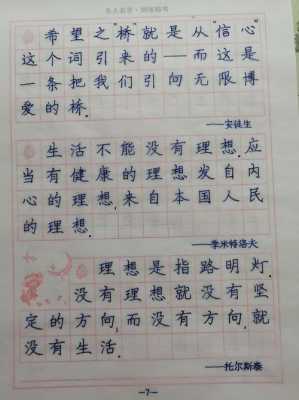 名人名言·钢笔临书
希望之"桥"就是从"信心"
这个词引来的——而这是
一条把我们引向无限博
爱的桥.
——安徒生
生活不能没有理想.应
当有健康的理想发自内
心的理想,来自本国人民
的理想.
——季米特洛夫
理想是指路明灯.
没有理想就没有坚
定的方向,而没有方向,就
没有生活.
——托尔斯泰
—7—